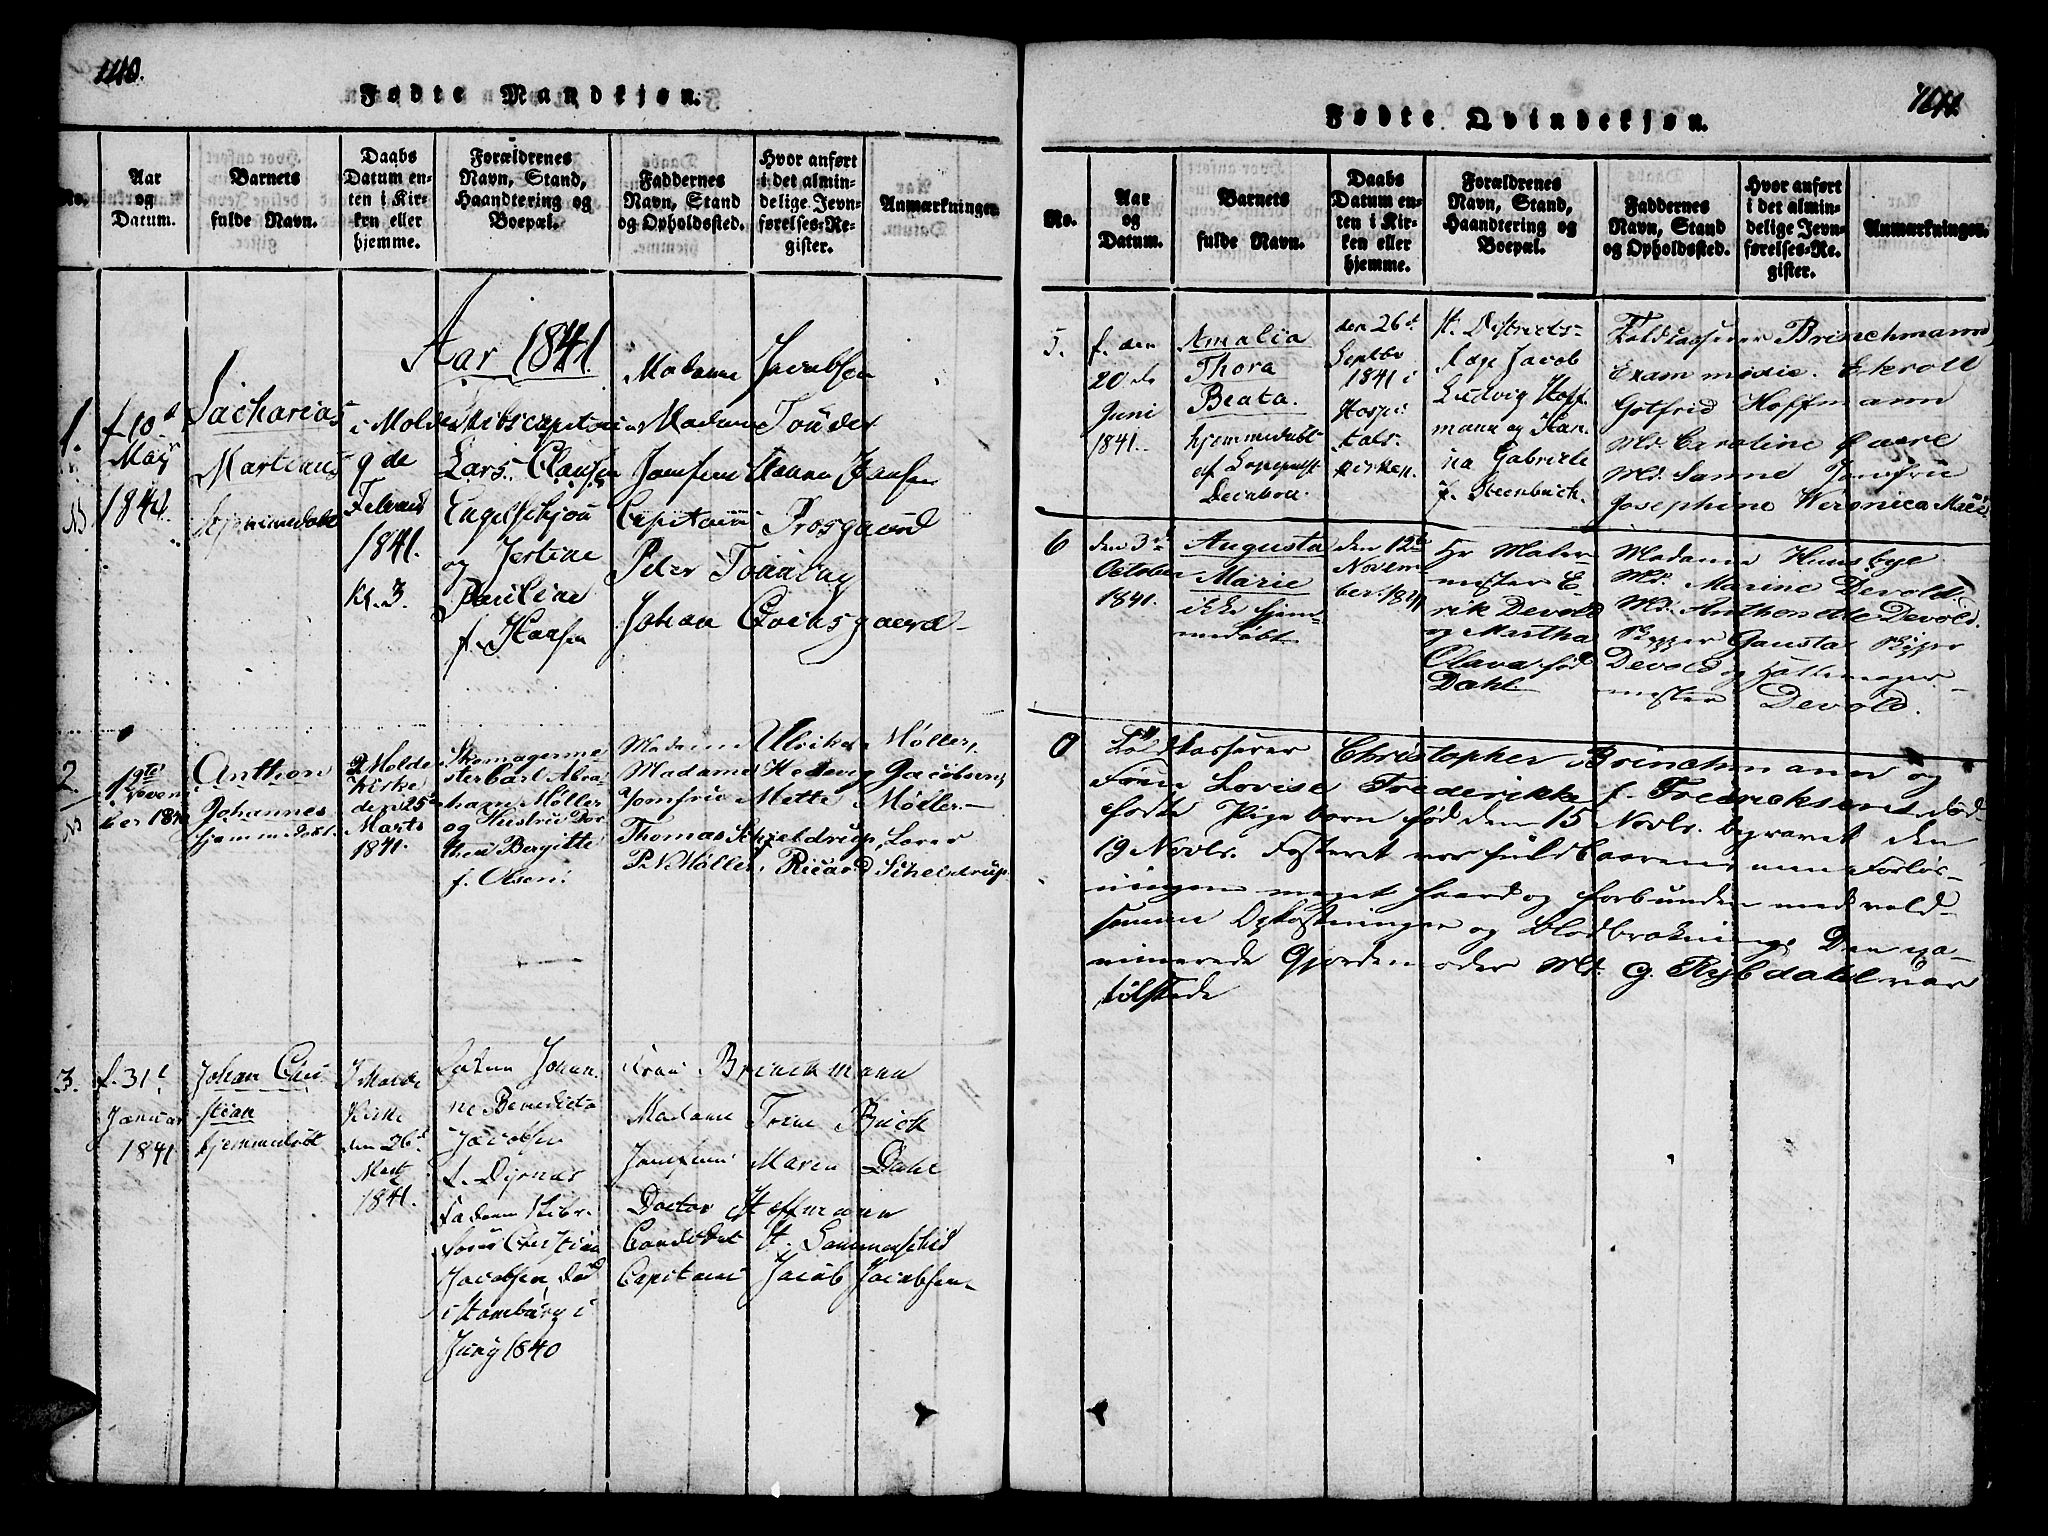 140.
Fødte Mandkjøn.
No.
Aar og Datum.
Barnets fulde Navn.
Daabs Datum enten i Kirken eller hjemme.
Forældrenes Navn, Stand, Haandtering og Boepæl.
Faddernes Navn, Stand og Opholdssted.
Hvor anført i det almindelige Jevnførelses-Register.
Anmærkninger.
Aar 1841.
1.
f. 10d
May
1841.
Sacharias
Martinus
hjemmedøbt
i Molde
9 de
Februar
1841.
Kl. 3.
Lars Clausen
Engelsckjøn
og Jertine
Pauline
f. Hansen
Madame Jacobsen
Madame Tønder
Jomfrue Hanna Jensen
Capitain Prosgaurd
Peter Tønnberg
Johan Qvihsgaard
2
19de
Novem
ber 1840
Anthon
Johannes
hjemmedøbt.
I Molde
Kirke
den 25d
Marts
1841.
Skomagerme-
ster Carl Abra-
ham Møller
og Hustru Dor
thea Bergitte
f. Olsen.
Madame Ulrikke Møller,
Madame Hedevig Jacobsen,
Jomfrue Mette Møller
Thomas Schjeldrup, Lærer
P. N. Møller, Ricard Scheldrup.
3.
f. 31t
Januar
1841
Johan Chri
stian
hjemmedøbt
I Molde
Kirke
den 26d
Martz
1841.
Johan
ne Benedicta
Jacobsen
f. Dyrnæs
Faderen Skibr.
Jacobsen, død
i Hamburg i
Juny 1840
Frue Brinckmann
Madame Trine Buck
Jomfrue Maren Dahl
Doctor Hoffmann
Candidat H. Sommerschild
Capitain Jacob Jacobsen
141.
Fødte Qvindekjøn.
No.
Aar og Datum.
Barnets fulde Navn.
Daabs Datum enten i Kirken eller hjemme.
Forældrenes Navn, Stand, Haandtering og Boepæl.
Faddernes Navn, Stand og Opholdssted.
Hvor anført i det almindelige Jevnførelses-Register.
Anmærkninger.
5.
f. den
20 de
Juni
1841.
Amalia
Thora
Beata.
hjemmedøbt
af
den 26d
Septbr
1841 i
Hospi
tals-
kirken.
Hr. Districts-
læge Jacob
Ludvig Hoff
mann og Han
na Gabriele
f. Steenbuch.
Toldkasserer Brinchmann,
Exam medic. Ekroll
Gotfrid Hoffmann
Md. Caroline Owre
Md. Sanne Jomfrue
Josephine Weronica Møller
6
den 3de
October
1841.
Augusta
Marie
ikke hjem-
medøbt
den 12te
Novem-
ber 1841
Hr Maler-
mester E-
rik Devold
og Martha
Olava fød
Dahl
Madame Hunsbye
Md. Marine Devold
Md. Anthonette Devold.
Skipper Gaustad Skipper
Devold og Hattemager-
mester Devold.
0
Toldkasserer Christopher Brinchmann og
Frue Lovise Frederikke f. Fredriksens død-
fødte Pigebarn fød den 15 Novbr. begravet den
19 Novbr. Fosteret var fuldbaaren, men Forløs-
ningen meget haard og forbunden med vold-
somme Opkastninger og Blodbrækning. Den exa-
minerede Gjordemoder Md. G. Rybdahl var
tilstæde